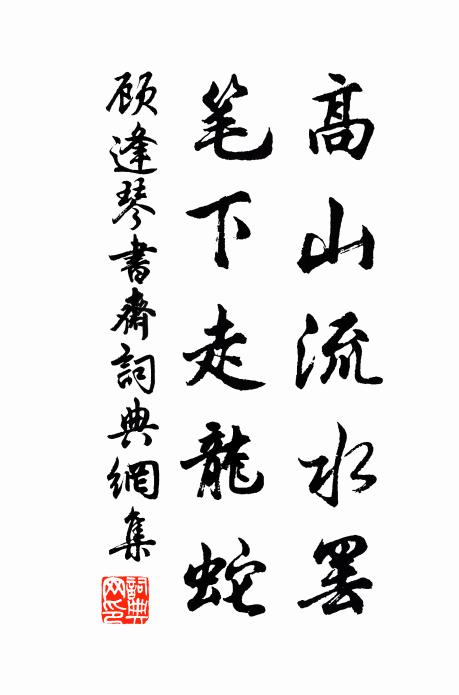 高山流水罢
笔下走龍蛇
顾逢琴書齋詞典網集
詞典